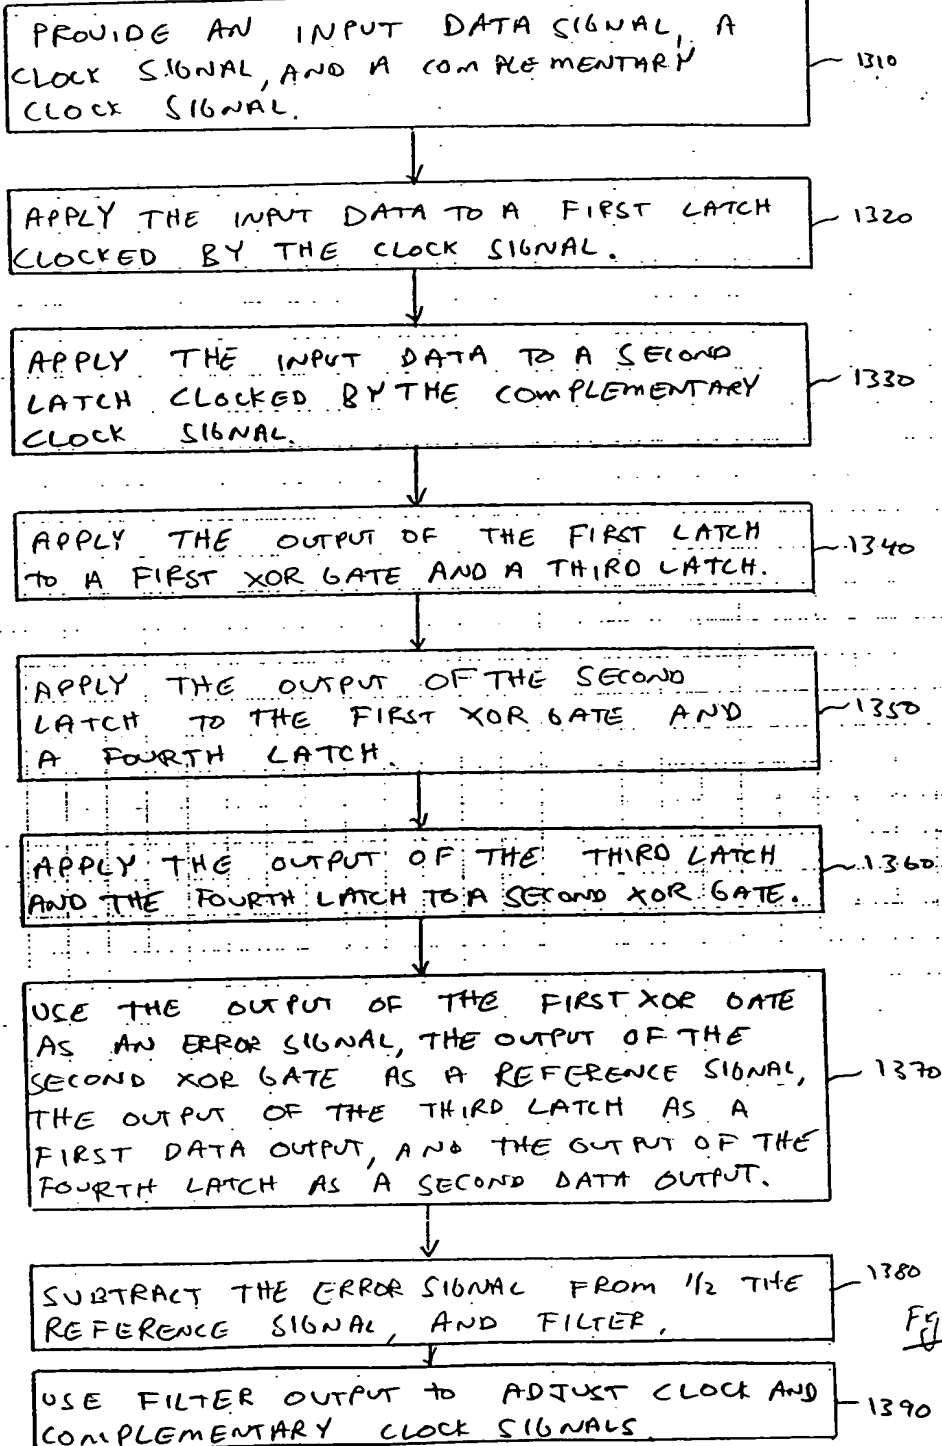 PROVIDE AN INPUT DATA SIGNAL, A
CLOCK SIGNAL, AND A COMPLEMENTARY
CLOCK SIGNAL.
1310
APPLY THE INPUT DATA TO A FIRST LATCH
CLOCKED BY THE CLOCK SIGNAL.
1320
APPLY THE INPUT DATA TO A SECOND
LATCH CLOCKED BY THE COMPLEMENTARY
CLOCK SIGNAL.
1330
APPLY THE OUTPUT OF THE FIRST LATCH
TO A FIRST XOR GATE AND A THIRD LATCH.
1340
APPLY THE OUTPUT OF THE SECOND
LATCH TO THE FIRST XOR GATE AND
A FOURTH LATCH.
1350
APPLY THE OUTPUT OF THE THIRD LATCH
AND THE FOURTH LATCH TO A SECOND XOR GATE.
1360
USE THE OUTPUT OF THE FIRST XOR GATE
AS AN ERROR SIGNAL, THE OUTPUT OF THE
SECOND XOR GATE AS A REFERENCE SIGNAL,
THE OUTPUT OF THE THIRD LATCH AS A
FIRST DATA OUTPUT, AND THE OUTPUT OF THE
FOURTH LATCH AS A SECOND DATA OUTPUT.
1370
SUBTRACT THE ERROR SIGNAL FROM 1/2 THE
REFERENCE SIGNAL, AND FILTER.
1380
Fig
USE FILTER OUTPUT TO ADJUST CLOCK AND
COMPLEMENTARY CLOCK SIGNALS
1390